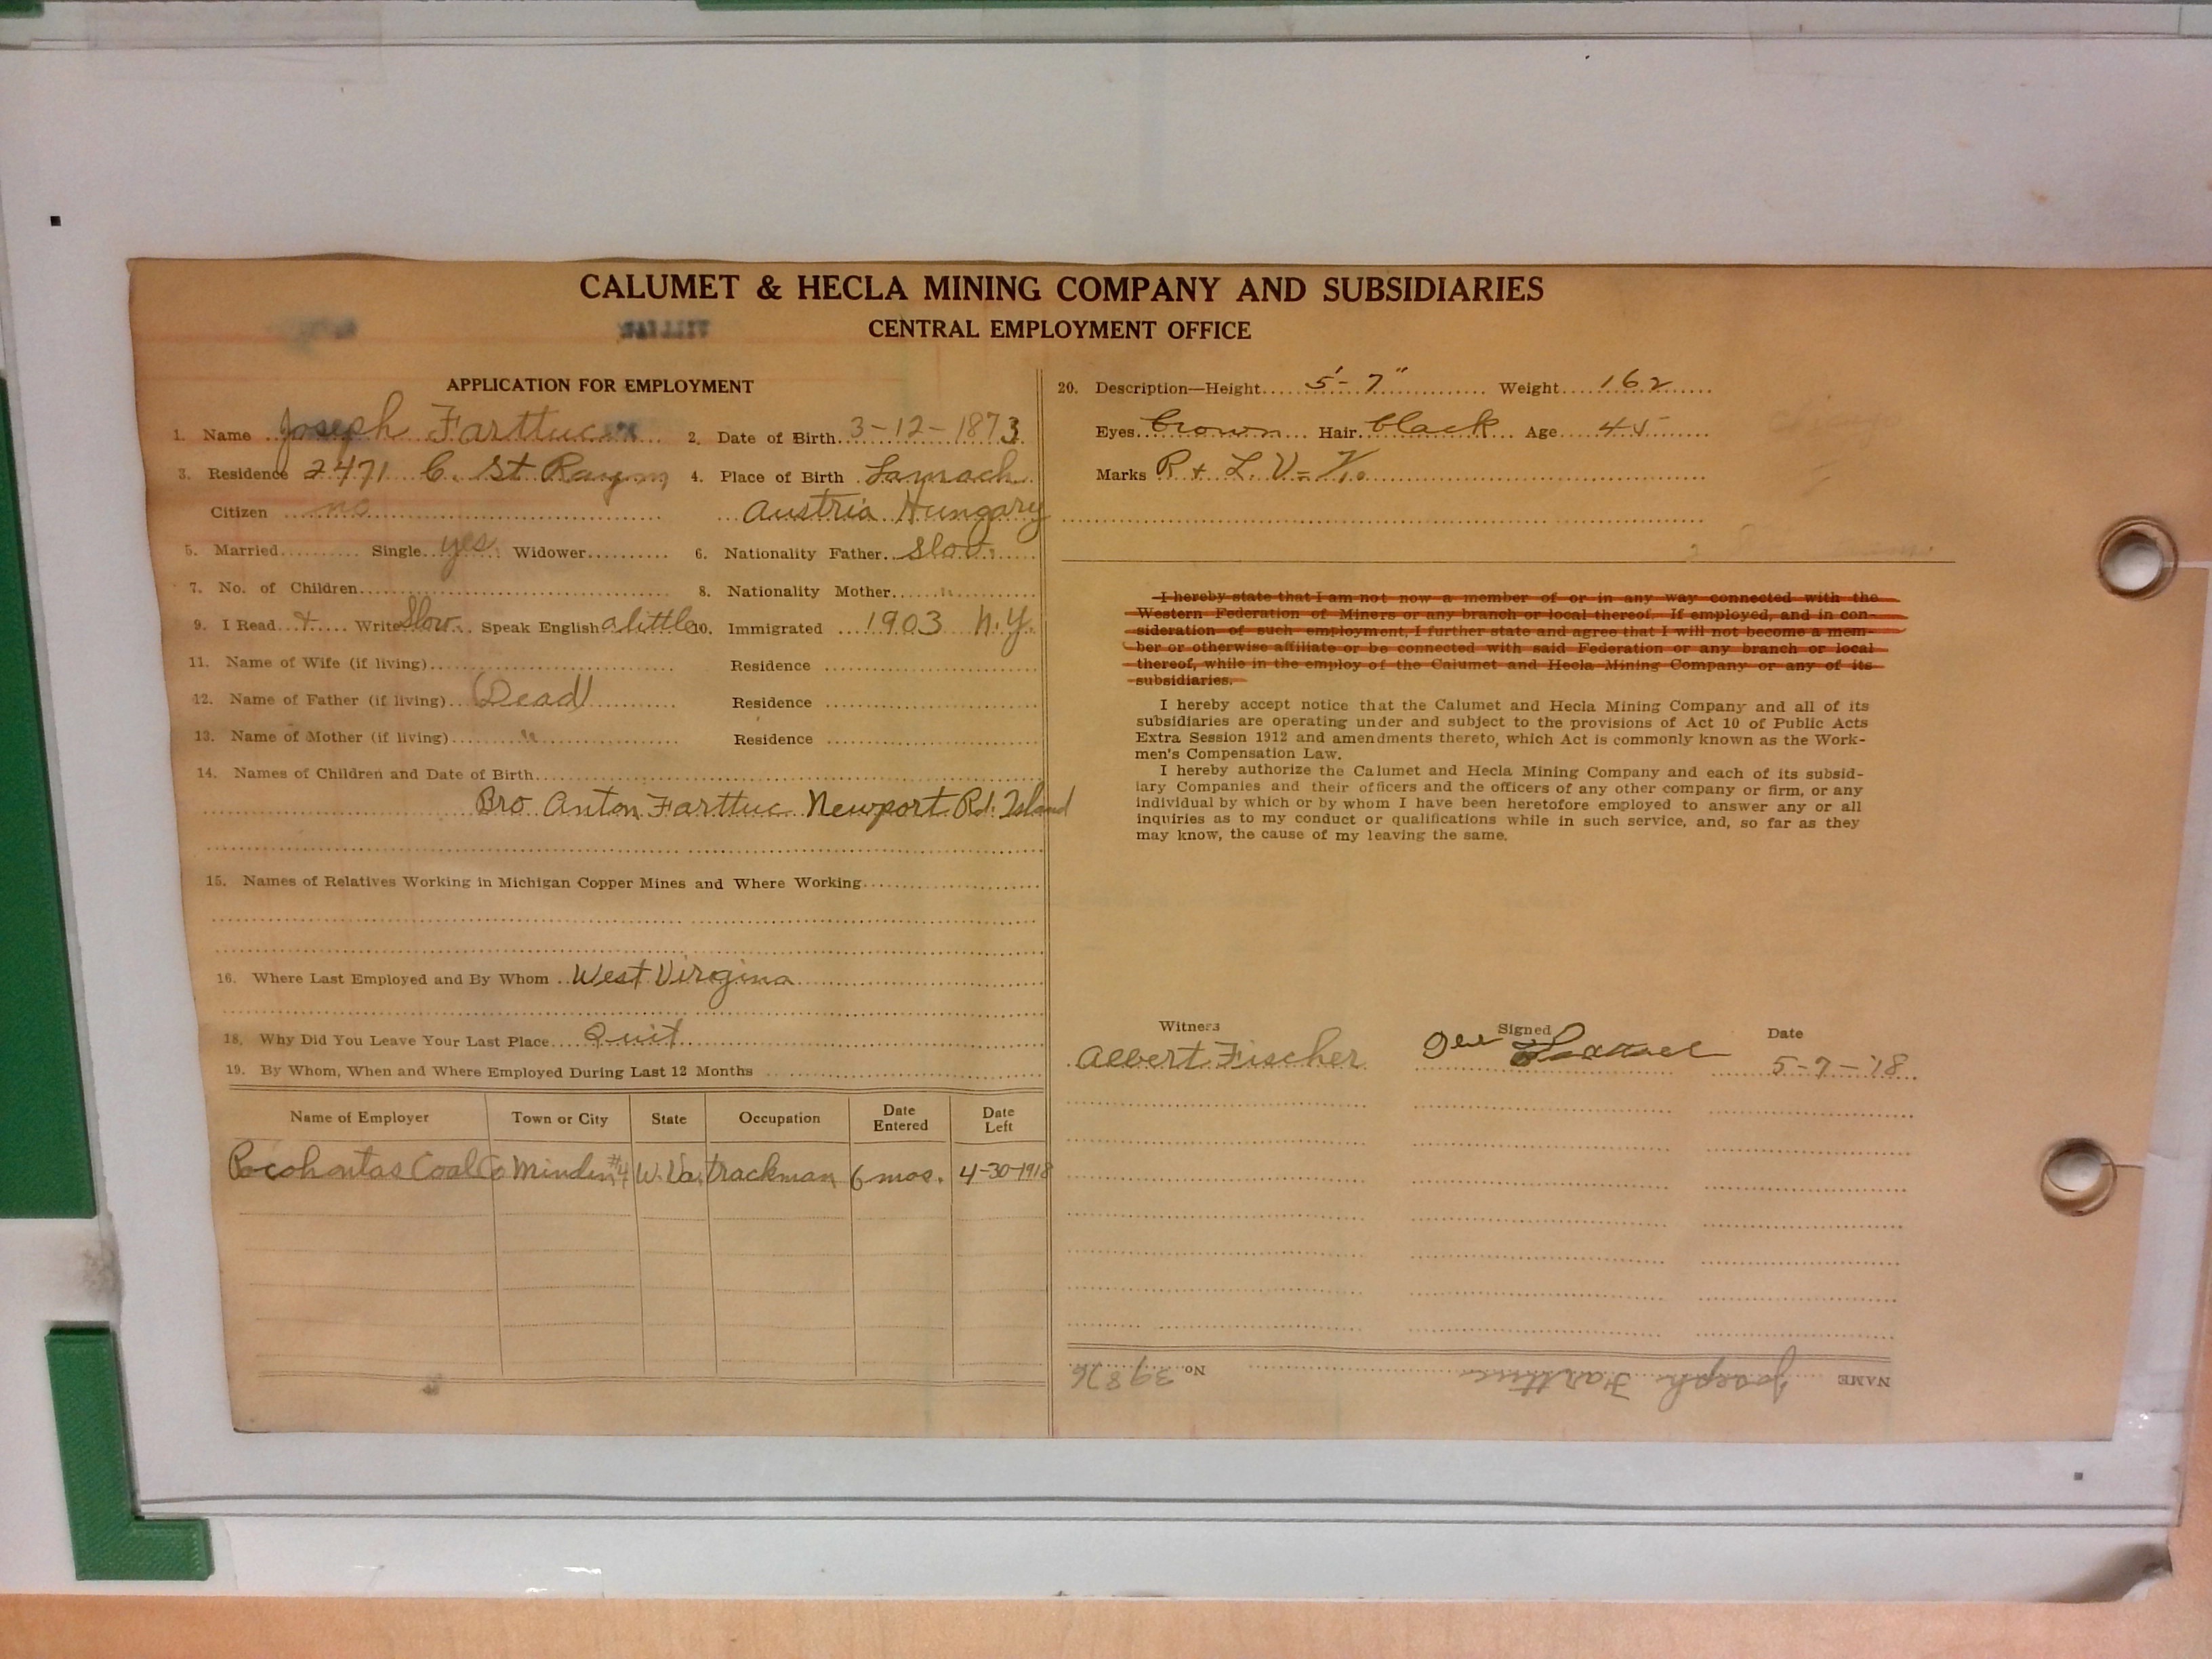 CALUMET & HECLA MINING COMPANY AND SUBSIDIARIES
CENTRAL EMPLOYMENT OFFICE
APPLICATION FOR EMPLOYMENT
1. Name Joseph Farttuc 2. Date of Birth 3-12-1873
3. Residence 2471 C. St 4. Place of Birth
Citizen no Austria Hungary
5. Married Single yes Widower 6. Nationality Father Slov.
7. No. of Children 8. Nationality Mother "
9. I Read + Write Slov. Speak English a little 10. Immigrated 1903 N.Y.
11. Name of Wife (if living) Residence
12. Name of Father (if living) (Dead) Residence
13. Name of Mother (if living) " Residence
14. Names of Children and Date of Birth
Bro. Anton Farttuc Newport Rd. Island
15. Names of Relatives Working in Michigan Copper Mines and Where Working
16. Where Last Employed and By Whom West Virgina
18. Why Did You Leave Your Last Place Quit
19. By Whom, When and Where Employed During Last 12 Months
Name of Employer Town or City State Occupation Date Entered Date Left
Pocohontas Coal Co Minden #4 W. Va. trackman 6 mos. 4-30-1918
20. Description—Height 5'-7" Weight 162
Eyes brown Hair black Age 45
Marks R + L. V = 7/10
I hereby state that I am not now a member of or in any way connected with the
Western Federation of Miners or any branch or local thereof. If employed, and in con-
sideration of such employment, I further state and agree that I will not become a mem-
ber or otherwise affiliate or be connected with said Federation or any branch or local
thereof, while in the employ of the Calumet and Hecla Mining Company or any of its
subsidiaries.
I hereby accept notice that the Calumet and Hecla Mining Company and all of its
subsidiaries are operating under and subject to the provisions of Act 10 of Public Acts
Extra Session 1912 and amendments thereto, which Act is commonly known as the Work-
men's Compensation Law.
I hereby authorize the Calumet and Hecla Mining Company and each of its subsid-
iary Companies and their officers and the officers of any other company or firm, or any
individual by which or by whom I have been heretofore employed to answer any or all
inquiries as to my conduct or qualifications while in such service, and, so far as they
may know, the cause of my leaving the same.
Witness Signed Date
Albert Fischer 5-7-'18
NAME Joseph Farttuc No. 39826